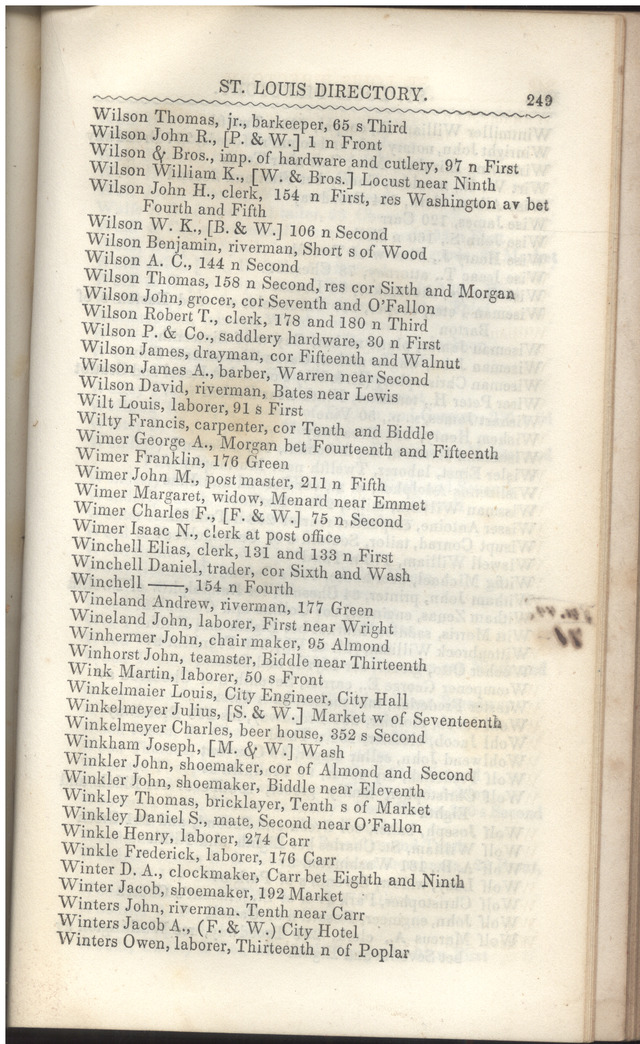 ST. LOUIS DIRECTORY. 249
Wilson Thomas, jr., barkeeper, 65 s Third
Wilson John R., [P. & W.] 1 n Front
Wilson & Bros., imp. of hardware and cutlery, 97 n First
Wilson William K., [W. & Bros.] Locust near Ninth
Wilson John H., clerk, 154 n First, res Washington av bet
Fourth and Fifth
Wilson W. K., [B. & W.] 106 n Second
Wilson Benjamin, riverman, Short s of Wood
Wilson A. C., 144 n Second
Wilson Thomas, 158 n Second, res cor Sixth and Morgan
Wilson John, grocer, cor Seventh and O'Fallon
Wilson Robert T., clerk, 178 and 180 n Third
Wilson P. & Co., saddlery hardware, 30 n First
Wilson James, drayman, cor Fifteenth and Walnut
Wilson James A., barber, Warren near Second
Wilson David, riverman, Bates near Lewis
Wilt Louis, laborer, 91 s First
Wilty Francis, carpenter, cor Tenth and Biddle
Wimer George A., Morgan bet Fourteenth and Fifteenth
Wimer Franklin, 176 Green
Wimer John M., post master, 211 n Fifth
Wimer Margaret, widow, Menard near Emmet
Wimer Charles F., [F. & W.] 75 n Second
Wimer Isaac N., clerk at post office
Winchell Elias, clerk, 131 and 133 n First
Winchell Daniel, trader, cor Sixth and Wash
Winchell ——, 154 n Fourth
Wineland Andrew, riverman, 177 Green
Wineland John, laborer, First near Wright
Winhermer John, chair maker, 95 Almond
Winhorst John, teamster, Biddle near Thirteenth
Wink Martin, laborer, 50 s Front
Winkelmaier Louis, City Engineer, City Hall
Winkelmeyer Julius, [S. & W.] Market w of Seventeenth
Winkelmeyer Charles, beer house, 352 s Second
Winkham Joseph, [M. & W.] Wash
Winkler John, shoemaker, cor of Almond and Second
Winkler John, shoemaker, Biddle near Eleventh
Winkley Thomas, bricklayer, Tenth s of Market
Winkley Daniel S., mate, Second near O'Fallon
Winkle Henry, laborer, 274 Carr
Winkle Frederick, laborer, 176 Carr
Winter D. A., clockmaker, Carr bet Eighth and Ninth
Winter Jacob, shoemaker, 192 Market
Winters John, riverman. Tenth near Carr
Winters Jacob A., (F. & W.) City Hotel
Winters Owen, laborer, Thirteenth n of Poplar